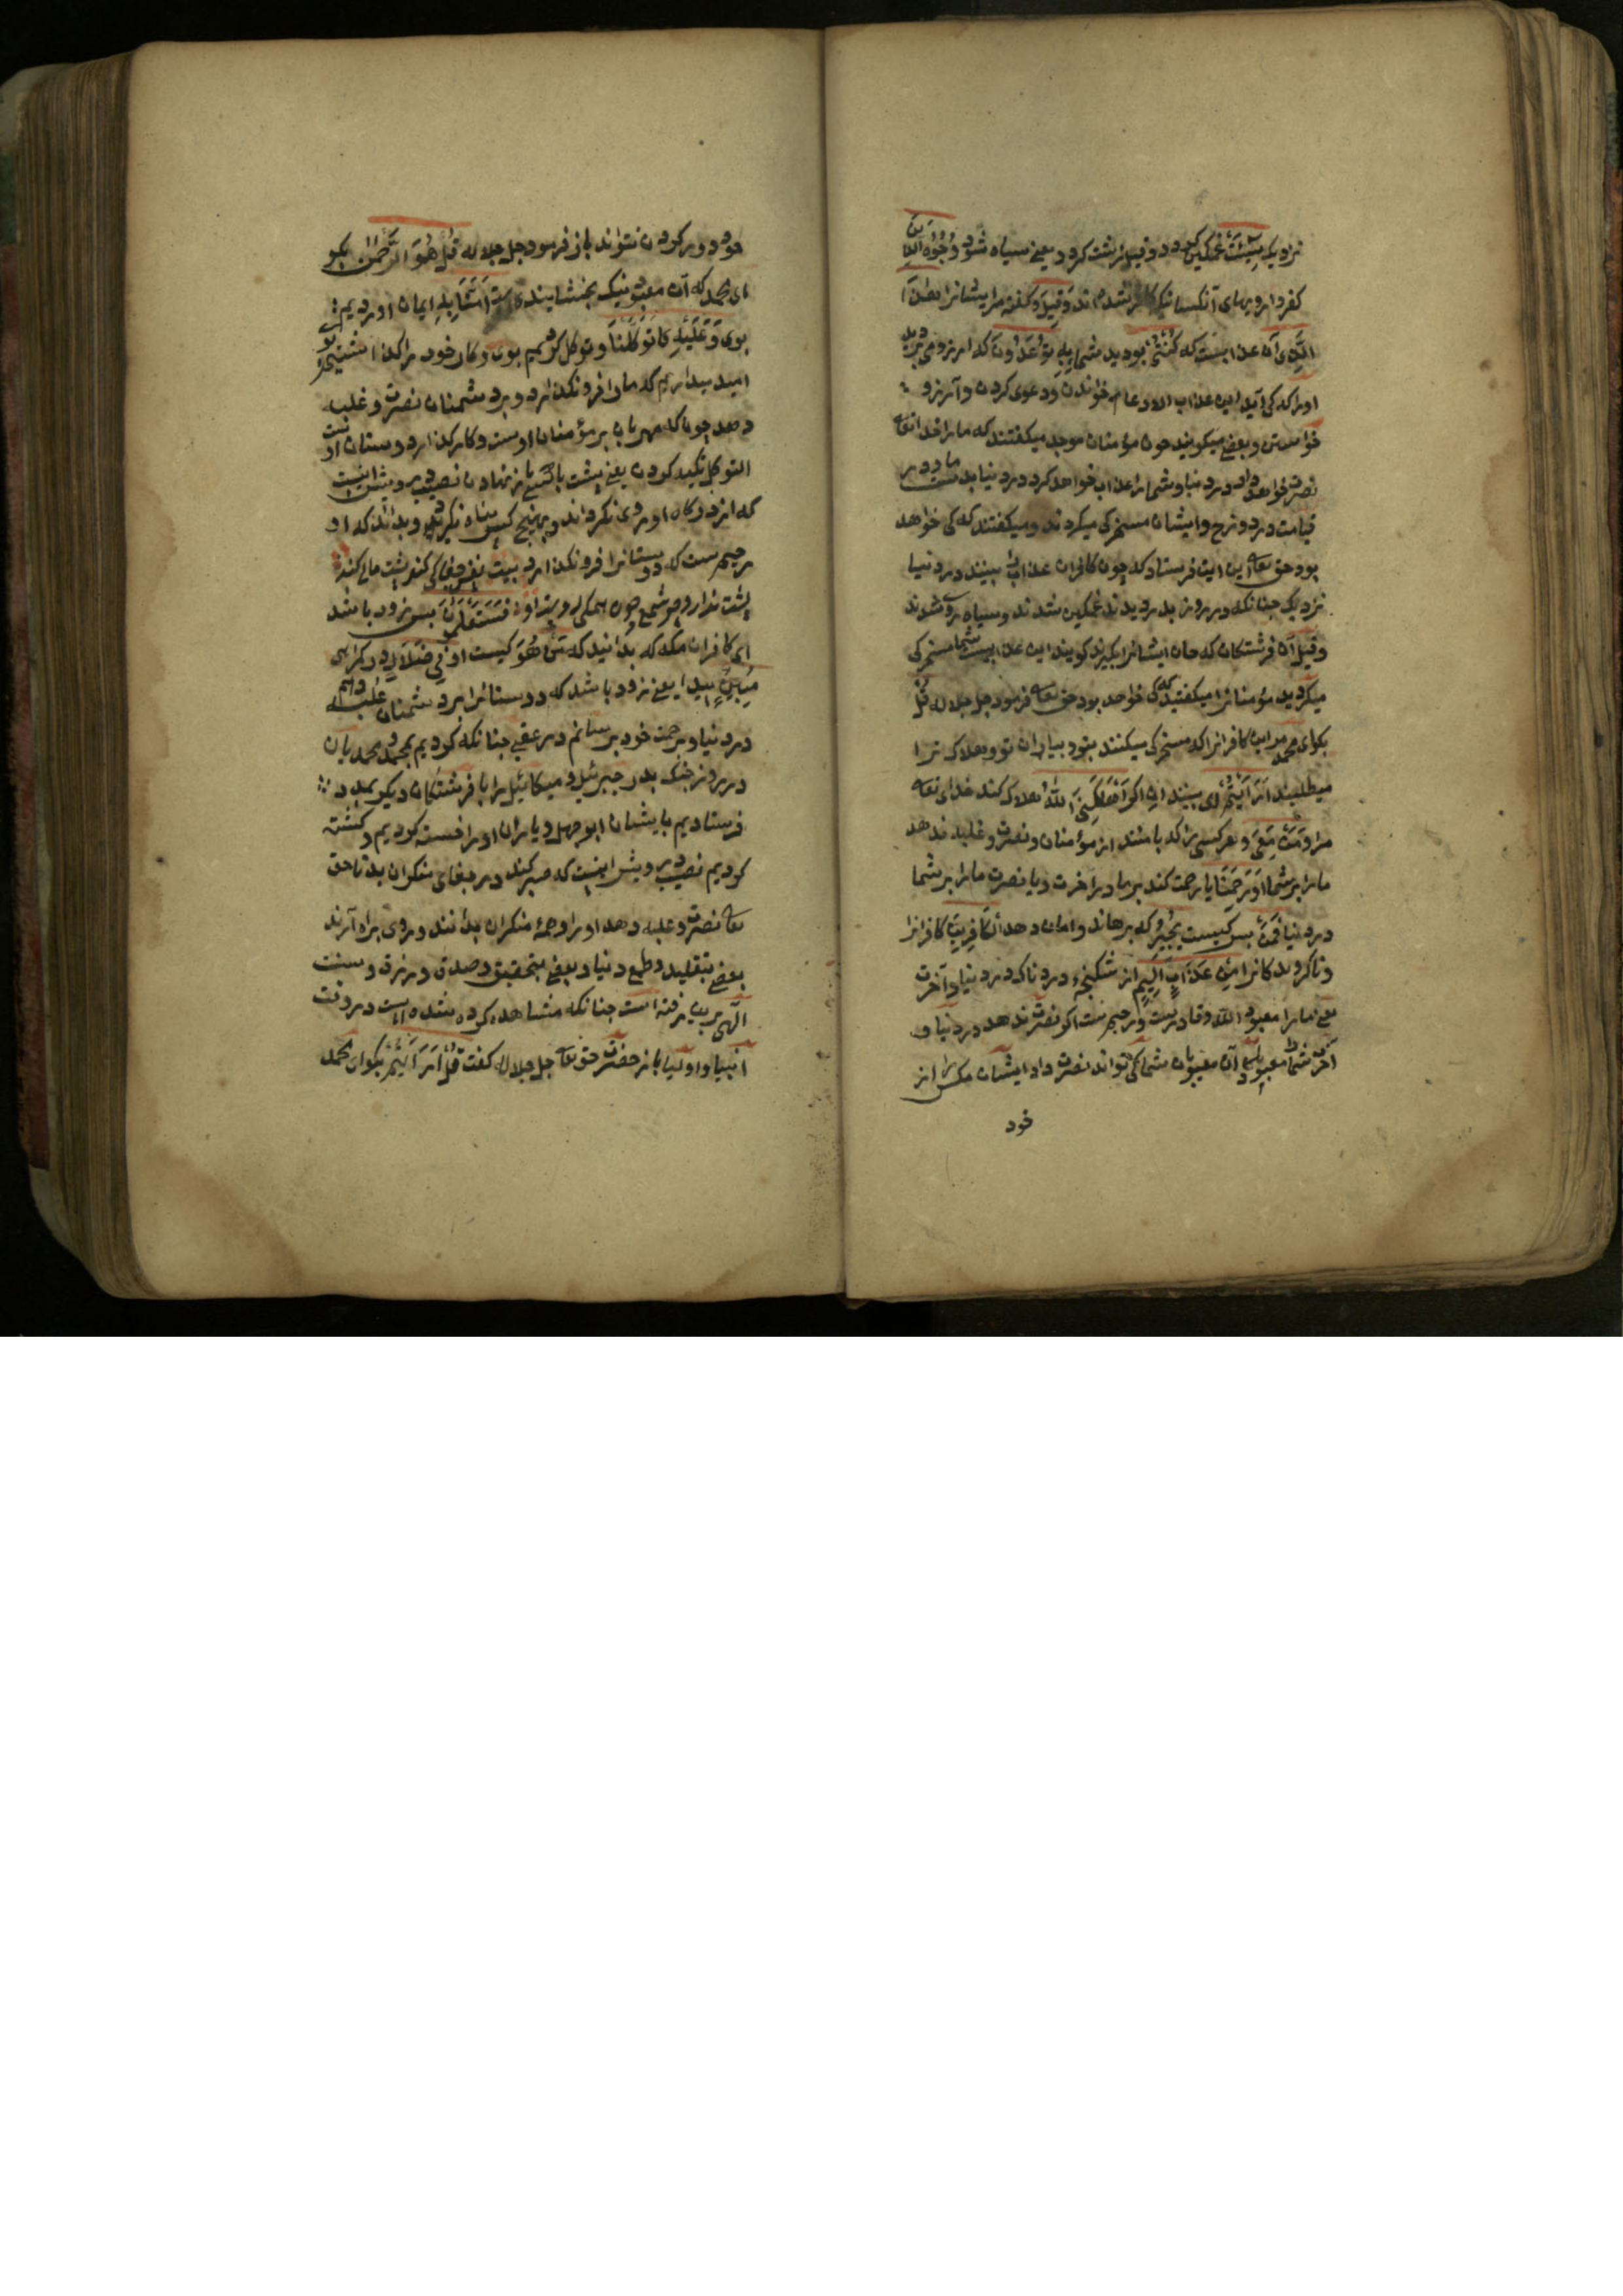 نزدیک سِیئَتْ غمکین کردد وقیل زشت کردد یعنی سیاه شود وُجُوْهُ الَّذِیْنَ
کفروا رویهای آنکسانیکه کافر شده اند وَقِیلَ وکفته مرایشانرا هٰذَا
الَّذِی آن عذابیست که کُنْتُمْ بودید شما بِهِ تَدَّعُوْنَ که امروز می
اورا که کی آید این عذاب الادعاء خواندن ودعوی کردن وآرزو
خواستن وبعضی میکویند چون مؤمنان موحد میکفتند که مارا خدا تعالی
نصرت خواهد داد در دنیا وشمارا عذاب خواهد کرد در دنیا بدست ما ودر
قیامت در دوزخ وایشان مسخرکی میکردند ومیکفتند که کی خواهد
بود حق تعالی این آیت فرستاد که چون کافران عذاب را بینند در دنیا
نزدیک چنانکه در روز بدر دیدند غمکین شدند وسیاه روی شدند
وقیل آن فرشتکان که جان ایشانرا بکیرند کویند این عذابیست شما مسخرکی
میکردید مؤمنانرا میکفتید که کی خواهد بود حق تعالی فرمود جل جلاله قُلْ
بکو ای محمد مر این کافرانرا که مسخرکی میکنند بتو وبیاران تو وهلاک ترا
میطلبند اَرَاَیْتُمْ ای بینید اِنْ اکر اَهْلَکَنِیَ اللّٰهُ هلاک کند خدای تعالی
مرا وَمَنْ مَعِیَ وهر کسی را که بامنند از مؤمنان ونصرت وغلبه ندهد
مارا بر شما اَوْ رَحِمَنَا یا رحمت کند بر ما در آخرت ویا نصرت مارا بر شما
در دنیا فَمَنْ پس کیست یُجِیْرُ که برهاند وامان دهد الْکَافِرِیْنَ کافرانرا
وناکرویدکانرا مِنْ عَذَابٍ اَلِیْمٍ از شکنجهٔ دردناک در دنیا وآخرت
یعنی مارا معبود الله وقادرست ورحیمست اکر نصرت ندهد در دنیا و
آخرت شما معبود آن معبودان شما کی تواند نصرت داد ایشان مکس را از
خود
خود دور کردن نتواند باز فرمود جل جلاله قُلْ هُوَ الرَّحْمٰنُ بکو
ای محمد که آن معبود نیک بخشاینده است اٰمَنَّا بِهِ ایمان اوردیم
بوی وَعَلَیْهِ تَوَکَّلْنَا وتوکل کردیم بوی وکار خود را
امید میداریم که مارا فرو نکذارد وبر دشمنان نصرت وغلبه
دهد چون که مهربان بر مؤمنان اوست وکارکذار دوستان اوست
التوکل تکیه کردن یعنی پشت با کسی باز نهادن نصیب درویش اینست
که از درکاه او روی نکرداند وبهیچ کس پناه نکیرد وبداند که او
رحیمست که دوستانرا فرو نکذارد بیت
پشت ندارد چو شمع فَسَتَعْلَمُوْنَ پس زود باشد
ای کافران مکه که بدانید که مَنْ هُوَ کیست او فِی ضَلَالٍ در کمراهی
مُبِیْنٍ پیدا یعنی زود باشد که دوستانرا بر دشمنان غلبه دهم
در دنیا وبرحمت خود برسانم در عقبی چنانکه کردیم بمحمد ومحمدیان
در روز جنک بدر جبرئیل ومیکائیل را با فرشتکان دیکر بمدد
فرستادیم بایشان ابو جهل ویاران اورا خسته کردیم وکشته
کردیم نصیب درویش اینست که صبر کند در جفای منکران بد تا حق
تعالی نصرت وغلبه دهد اورا وهمه منکران بدانند وروی براه آرند
بعضی بتقلید وطمع دنیا وبعضی بتحقیق وصدق درزق وسنت
الٰهی برین رفته است چنانکه مشاهده کرده شده است در وقت
انبیا واولیا باز حضرت حق تعالی جل جلاله کفت قُلْ اَرَاَیْتُمْ بکو ای محمد